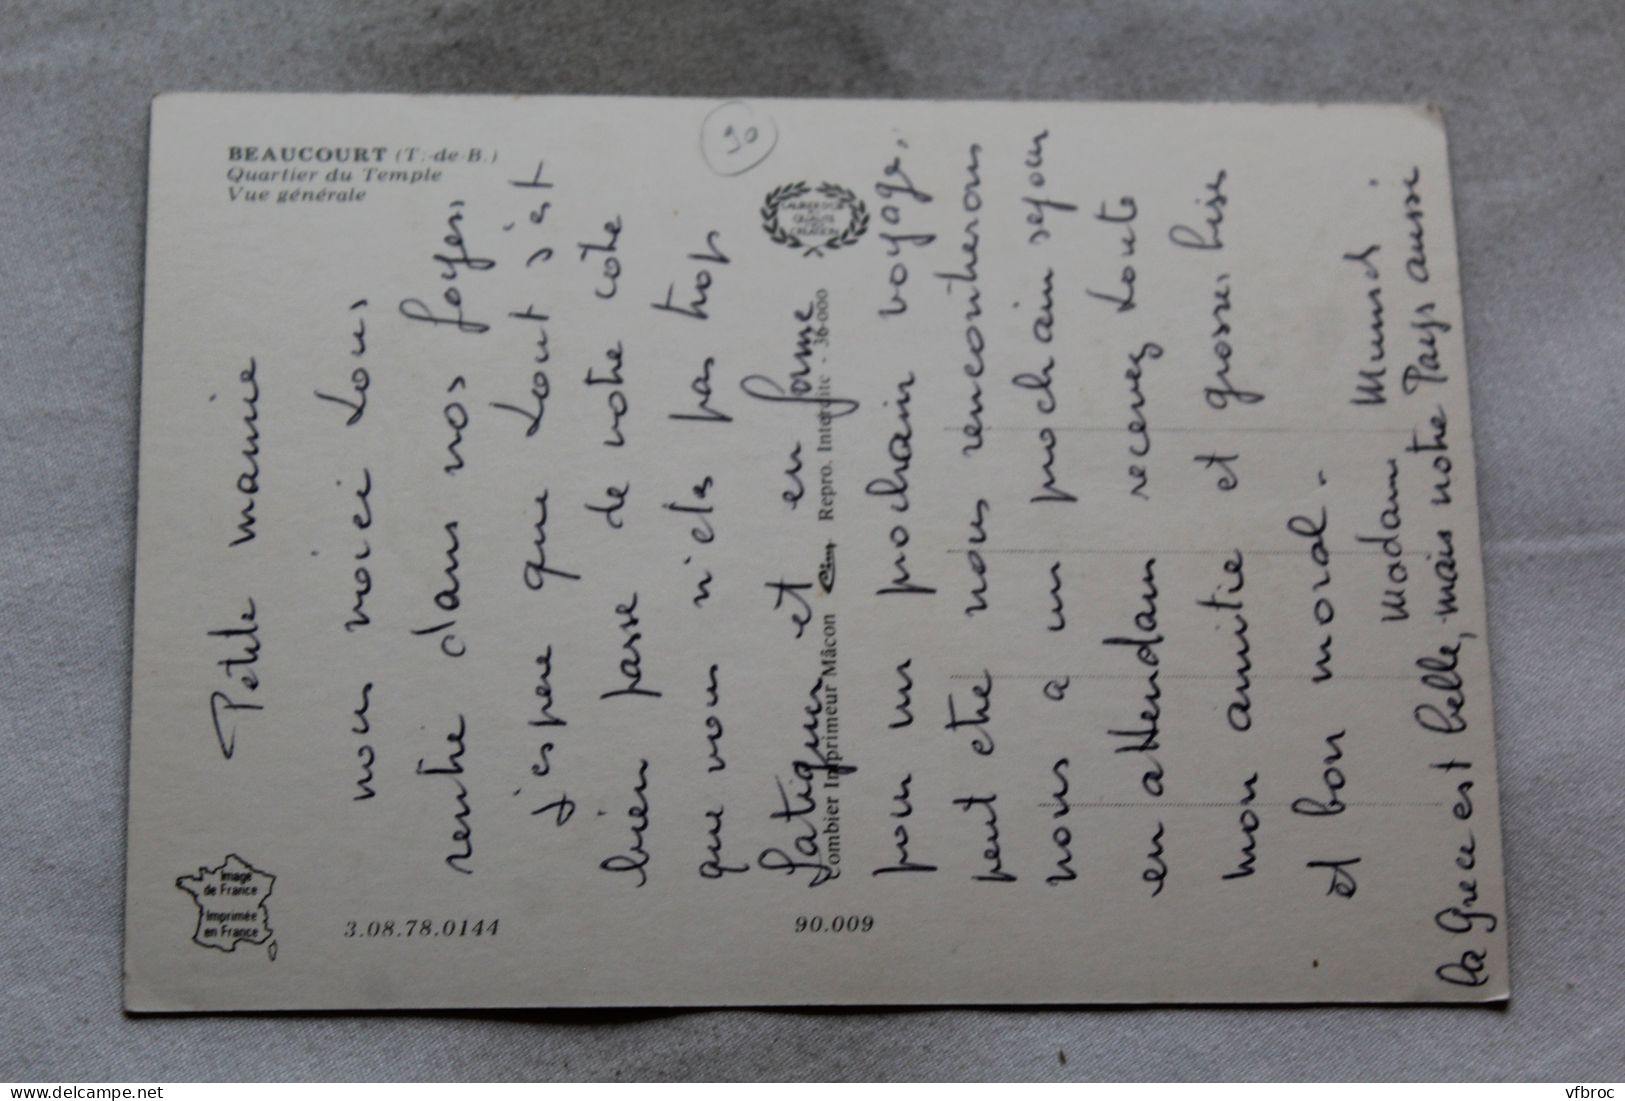 BEAUCOURT (T.-de-B.)
Quartier du Temple
Vue générale
90
LAURIER D'OR
QUALITE
CREATION
Image
de France
Imprimée
en France
3.08.78.0144
90.009
Combier Imprimeur Mâcon Cim Repro. Interdite - 36-000
Petite mamie
nous voici tous
rentré dans nos foyers
j'espere que tout s'est
bien passé de votre côté
que vous n'ets pas trop
fatiguer et en forme
pour un prochain voyage,
peut etre nous rencontrerons
nous a un prochain sejour
en attendan recevez toute
mon amitie et grosses bises
et bon moral.
Madam
la Grece est belle, mais notre Pays aussi
vfbroc